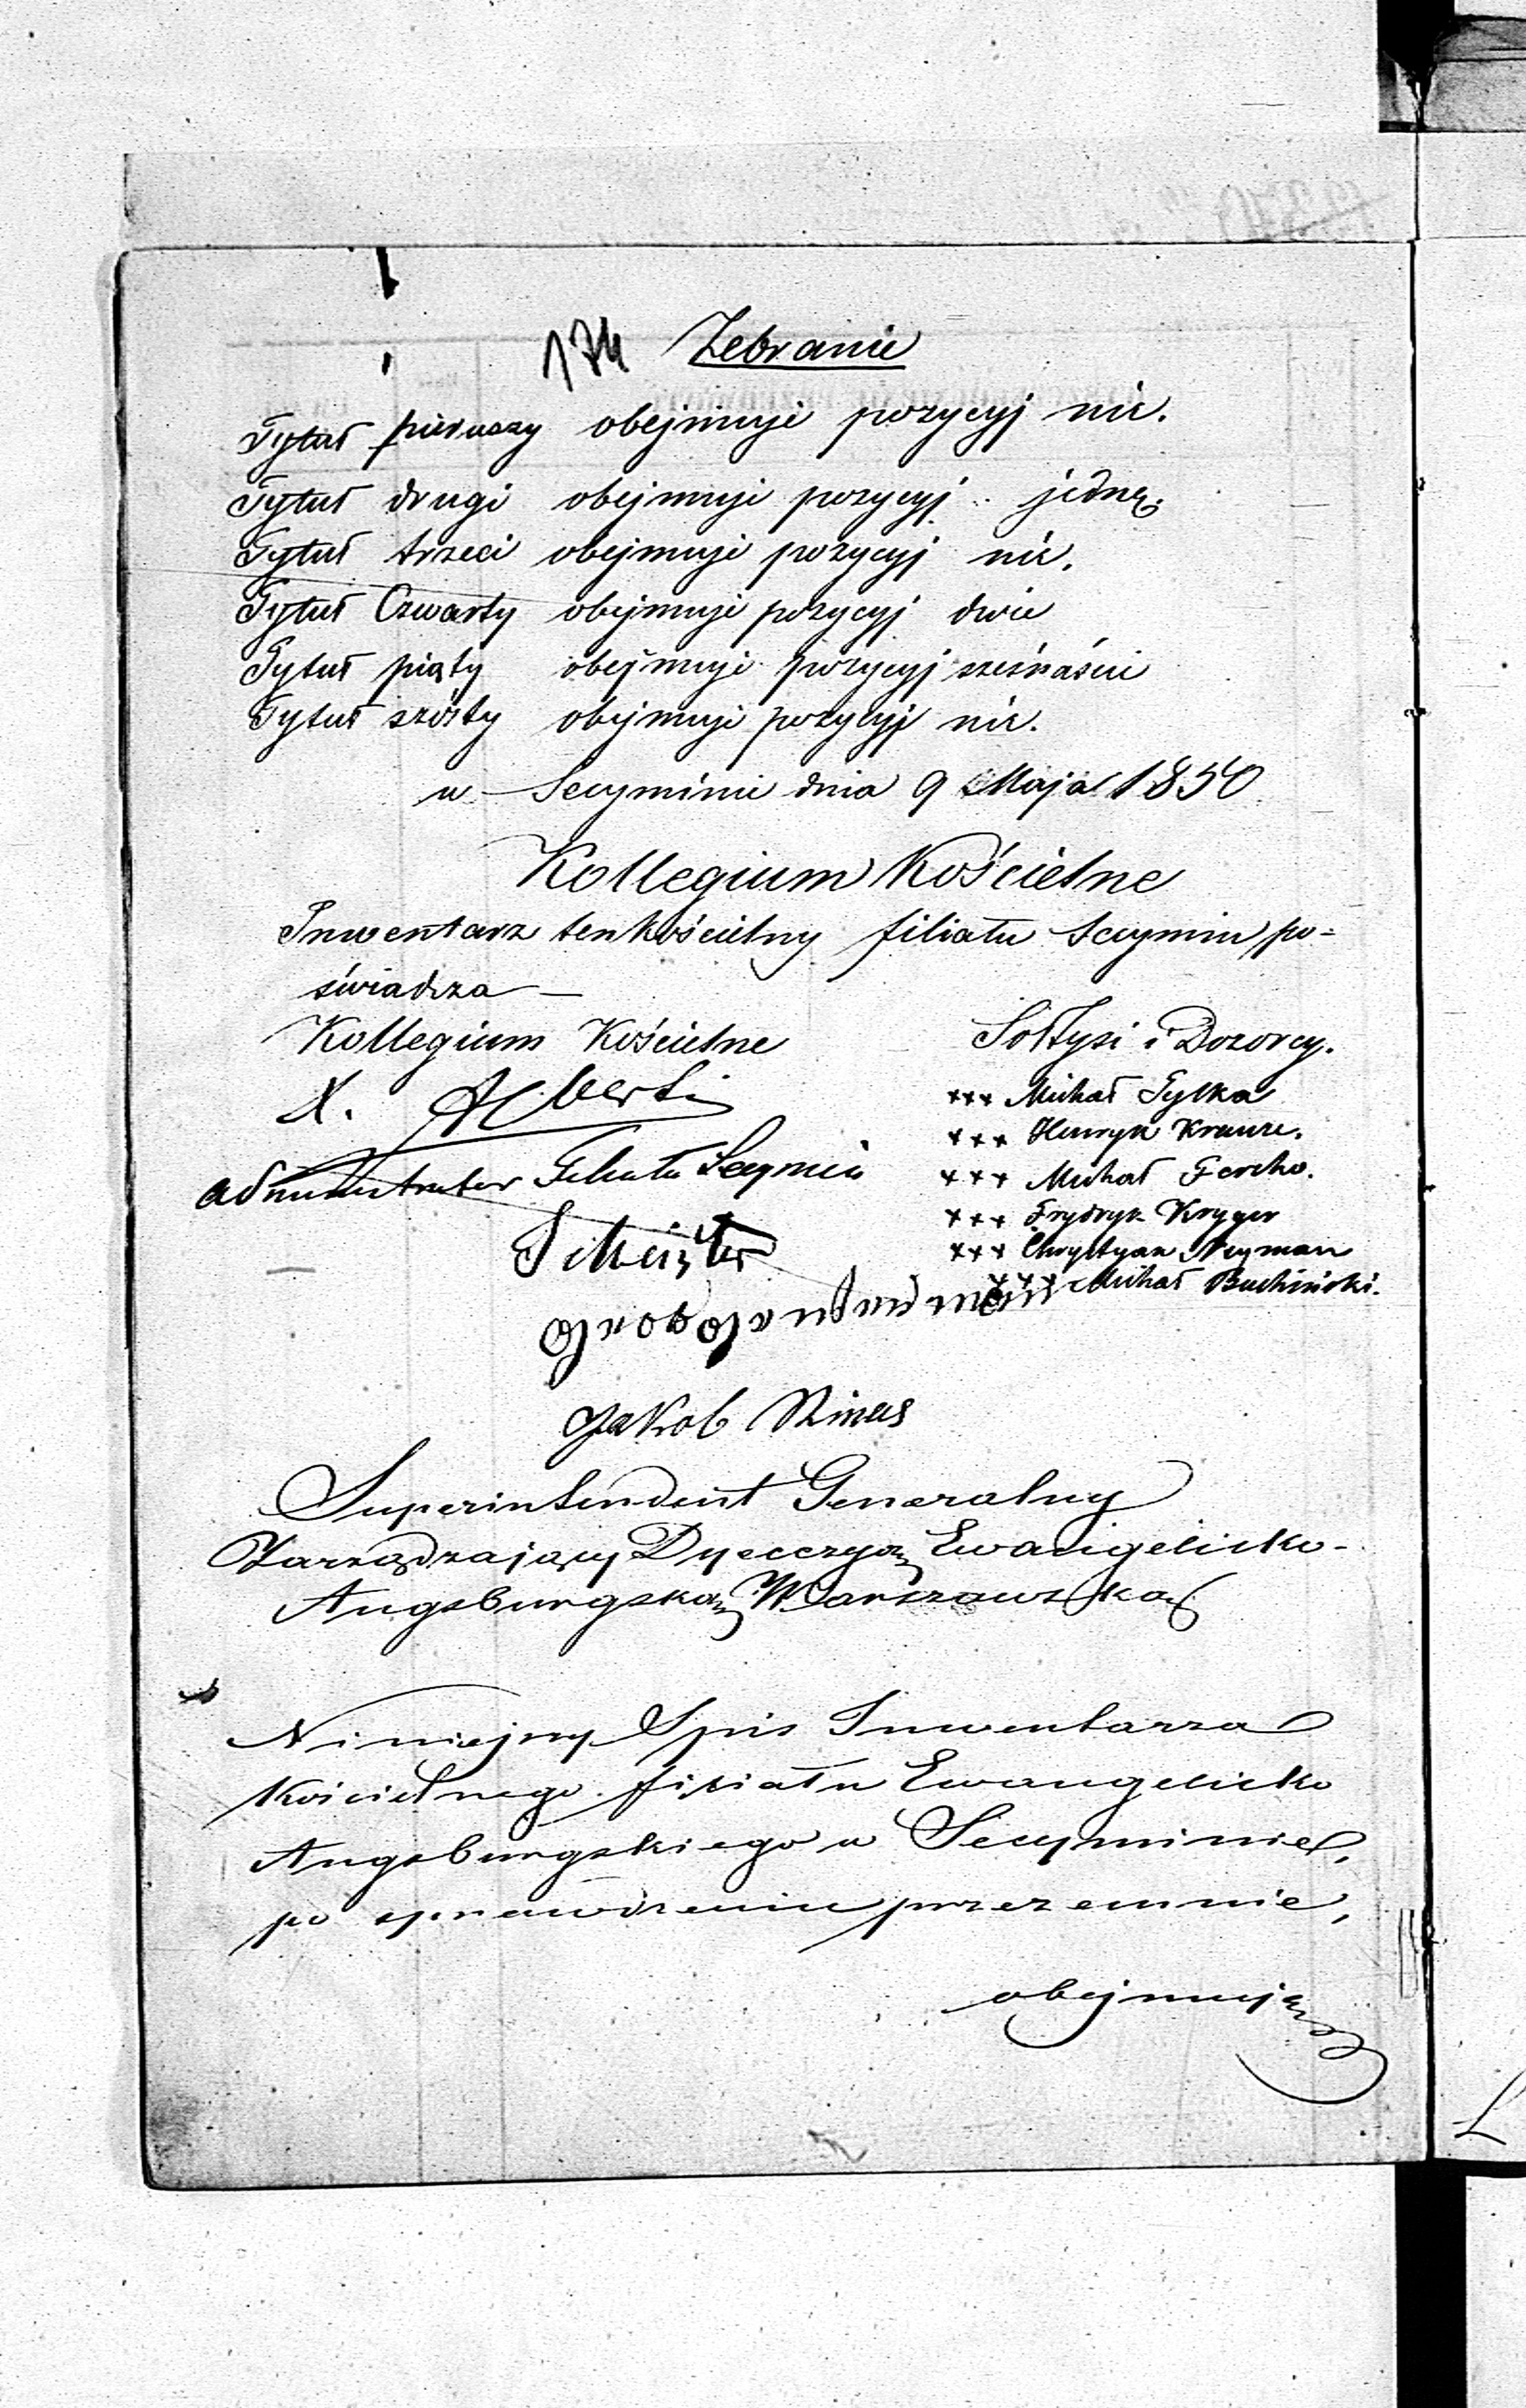 174 Zebranie
Tytuł pierwszy obejmuje pozycyj nic.
Tytuł drugi obejmuje pozycyj jednę.
Tytuł trzeci obejmuje pozycyj nic.
Tytuł Czwarty obejmuje pozycyj dwie
Tytuł piąty obejmuje pozycyj szesnaście
Tytuł szósty obejmuje pozycyj nic.
w Secyminie dnia 9 Maja 1850
Kollegium Kościelne
Inwentarz ten kościelny filiału Secymin po=
świadcza —
Kollegium Kościelne
X. Alberti
administrator Filiału Secymin
Sołtysi i Dozorcy.
xxx Michał Tylka
xxx Henryk Krauze.
xxx Michał Fercho.
xxx Frydryk Kryger
xxx Chrystyan Neyman
xxx Michał Buchiński.
Jakob Rinas
Superintendent Generalny
Zarządzający Dyecezyą Ewangelicko-
Augsburgską Warszawską
Niniejszy Spis Inwentarza
Kościelnego filiału Ewangelicko
Augsburgskiego w Secyminie,
po sprawdzeniu przezemnie,
obejmując